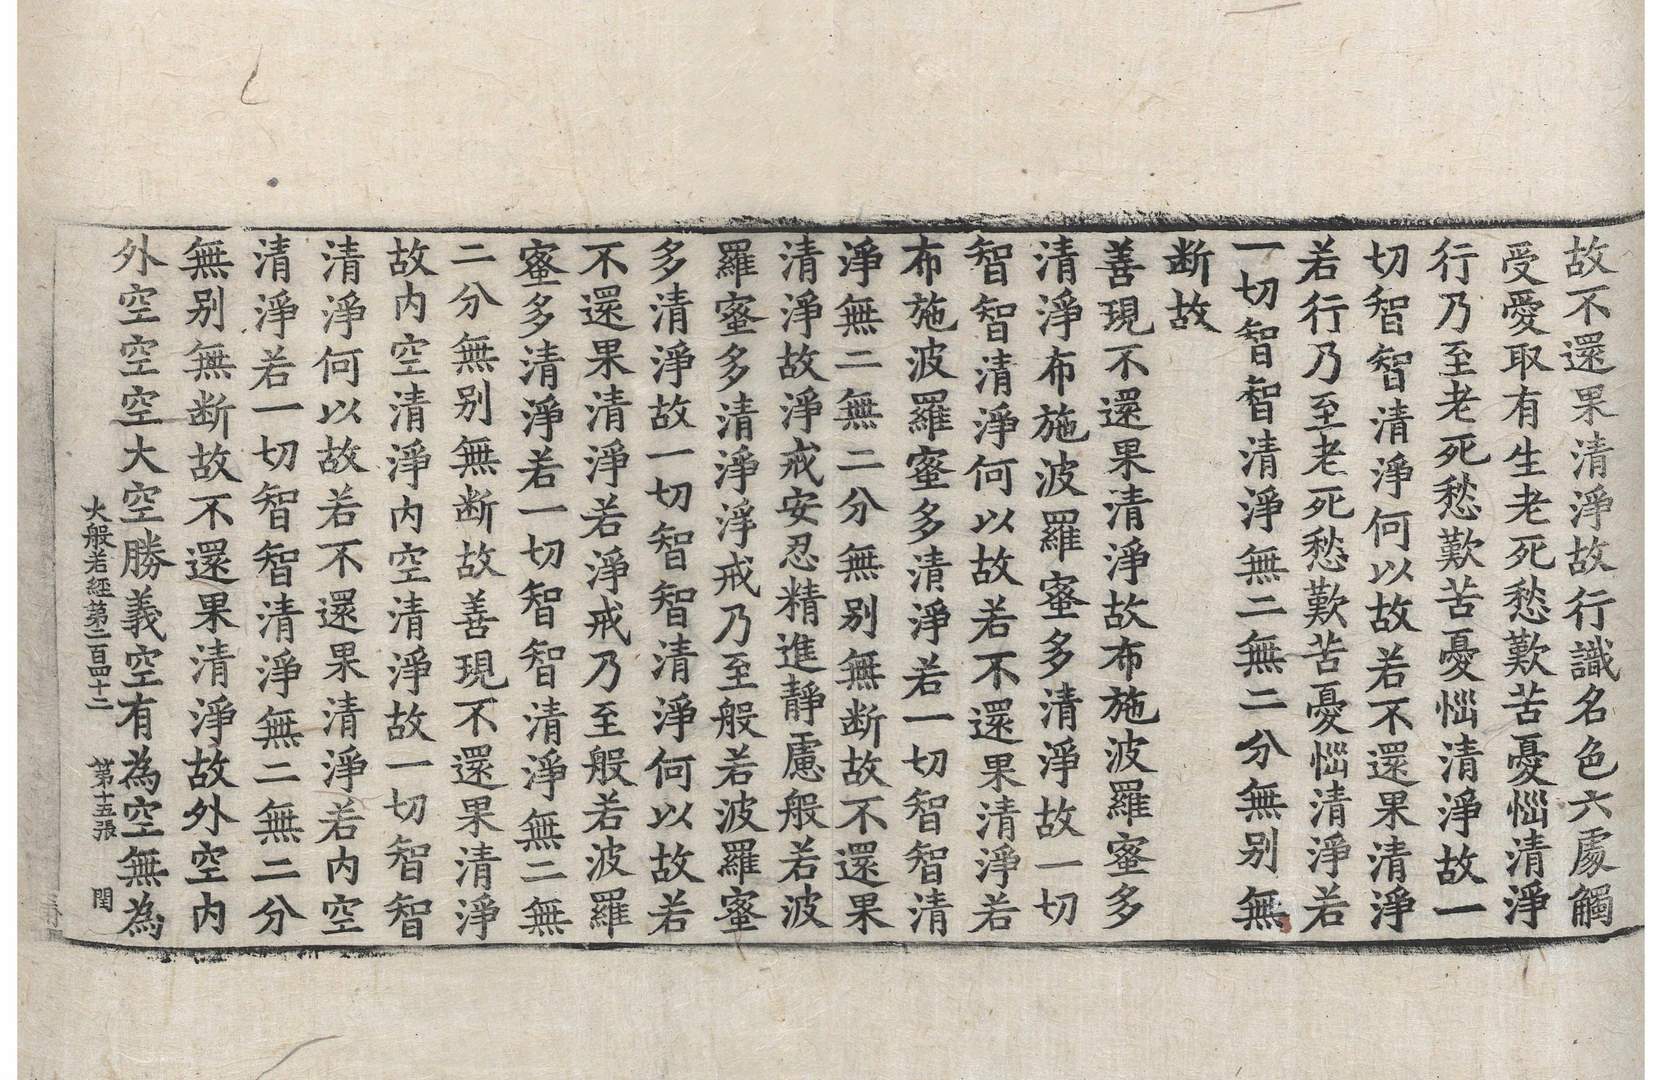 故不還果清淨故行識名色六處觸
受愛取有生老死愁歎苦憂惱清淨
行乃至老死愁歎苦憂惱清淨故一
切智智清淨何以故若不還果清淨
若行乃至老死愁歎苦憂惱清淨若
一切智智清淨無二無二分無别無
断故
善現不還果清淨故布施波羅蜜多
清淨布施波羅蜜多清淨故一切
智智清淨何以故若不還果清淨若
布施波羅蜜多清淨若一切智智清
淨無二無二分無别無断故不還果
清淨故淨戒安忍精進靜慮般若波
羅蜜多清淨淨戒乃至般若波羅蜜
多清淨故一切智智清淨何以故若
不還果清淨若淨戒乃至般若波羅
蜜多清淨若一切智智清淨無二無
二分無别無断故善現不還果清淨
故内空清淨内空清淨故一切智智
清淨何以故若不還果清淨若内空
清淨若一切智智清淨無二無二分
無别無断故不還果清淨故外空内
外空空空大空勝義空有為空無為
大般若經第二百四十二 第十五張 閏